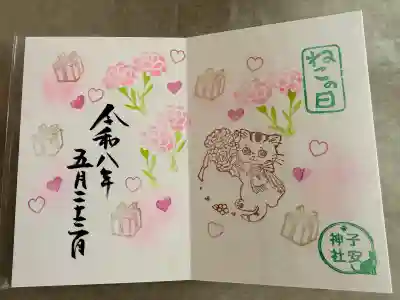 ねこの日
令和八年
五月二十二日
子安
神社